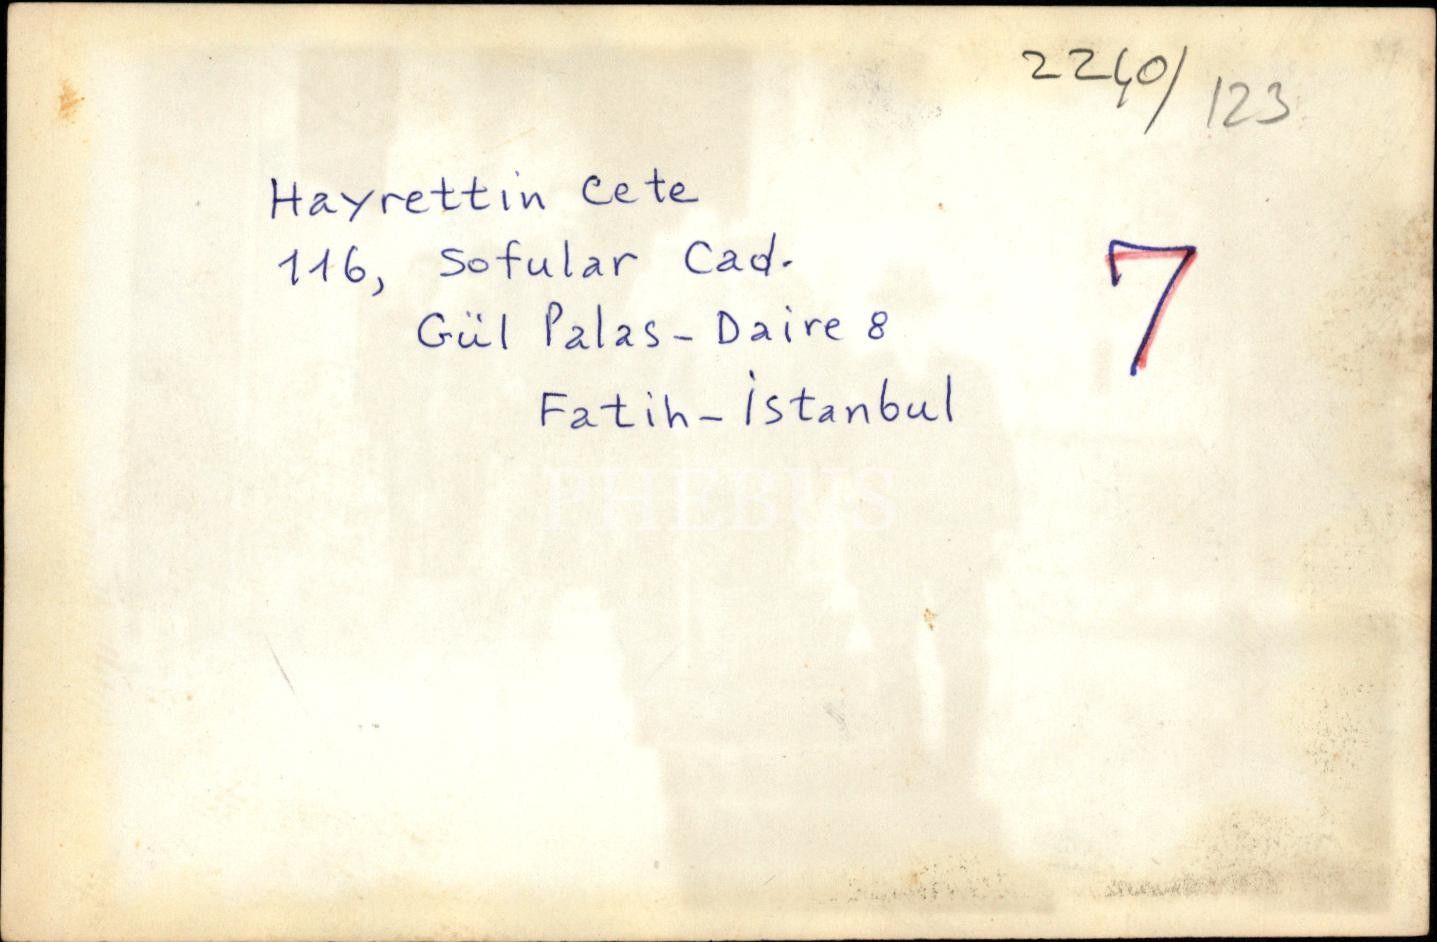 2240/123
Hayrettin Cete
116, Sofular Cad.
7
Gül Palas-Daire 8
Fatih-İstanbul
PHEBUS